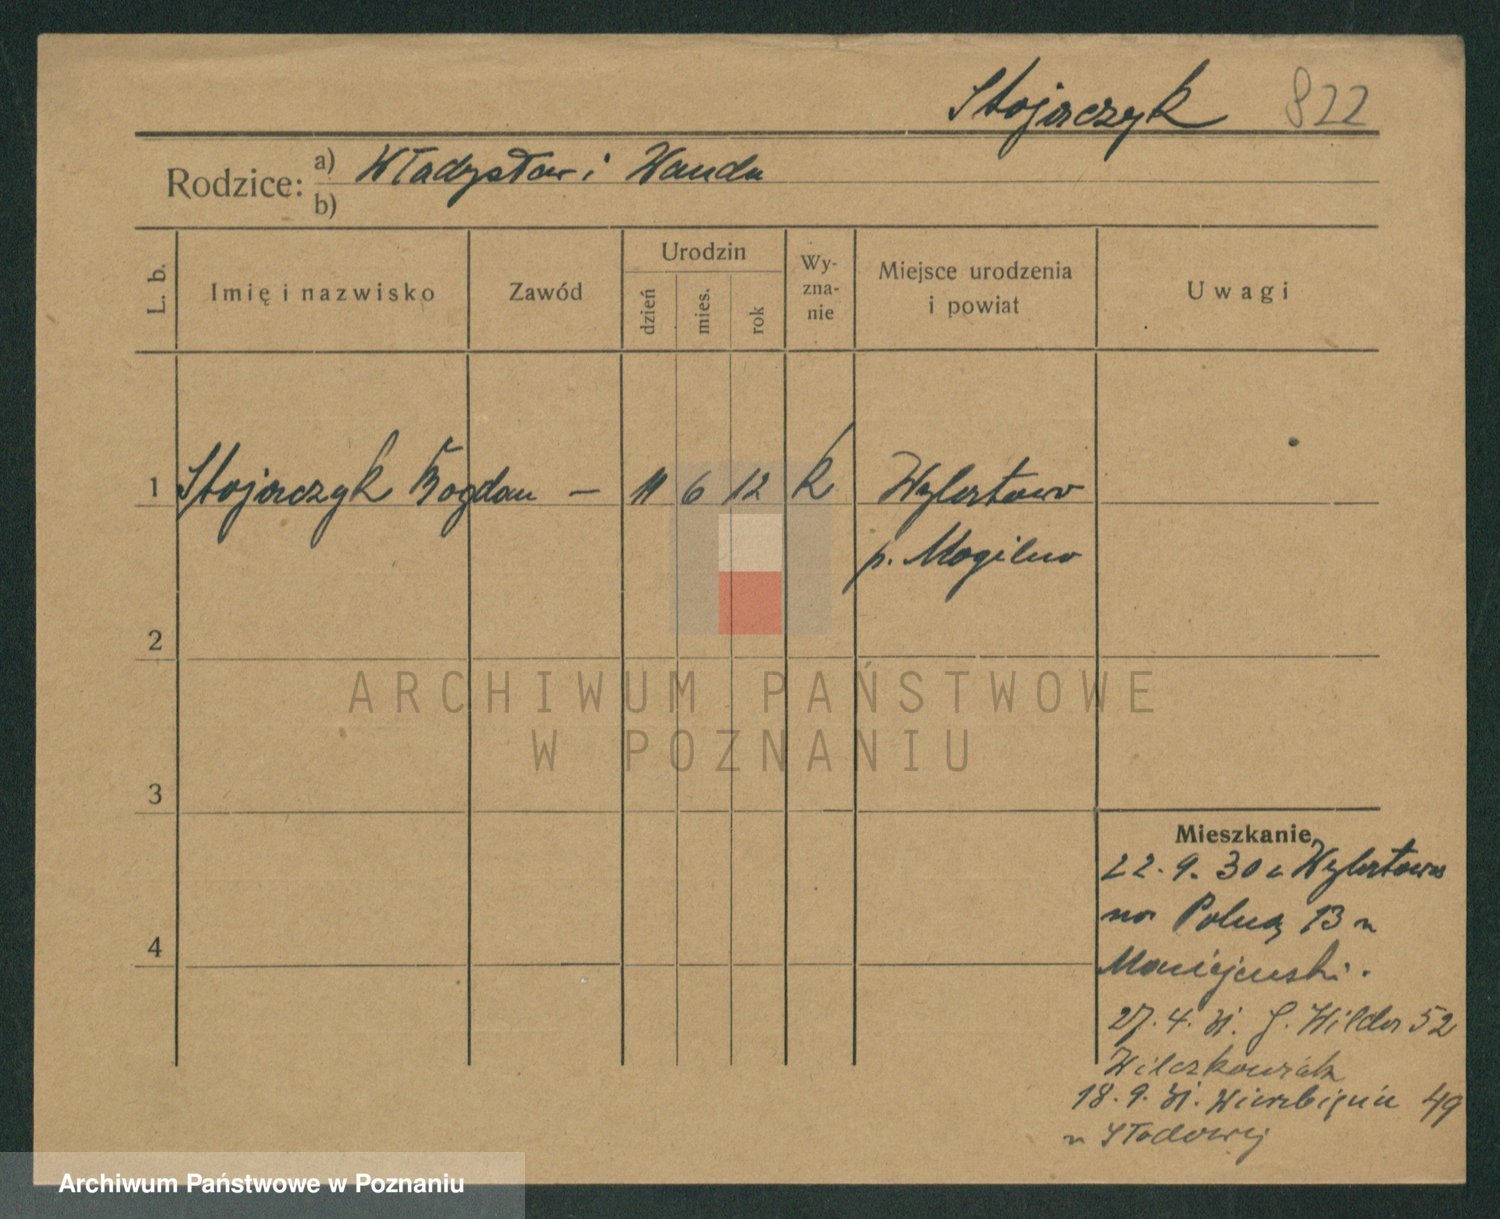 Stojaczyk 822
Rodzice: a) Władysław i Wanda
b)
L. b. Imię i nazwisko Zawód Urodzin dzień mies. rok Wy-zna-nie Miejsce urodzenia i powiat Uwagi
1 Stojaczyk Bogdan — 11 6 12 k Wylatowo
p. Mogilno
2
ARCHIWUM PAŃSTWOWE
W POZNANIU
3
Mieszkanie
22. 9. 30 z Wylatowa
na Polną 13 u
Maciejewski.
27. 4. 31. G. Wilda 52
Wilczkowiak
18. 9. 31. Wierzbięcic 49
u Stodowej
4
Archiwum Państwowe w Poznaniu